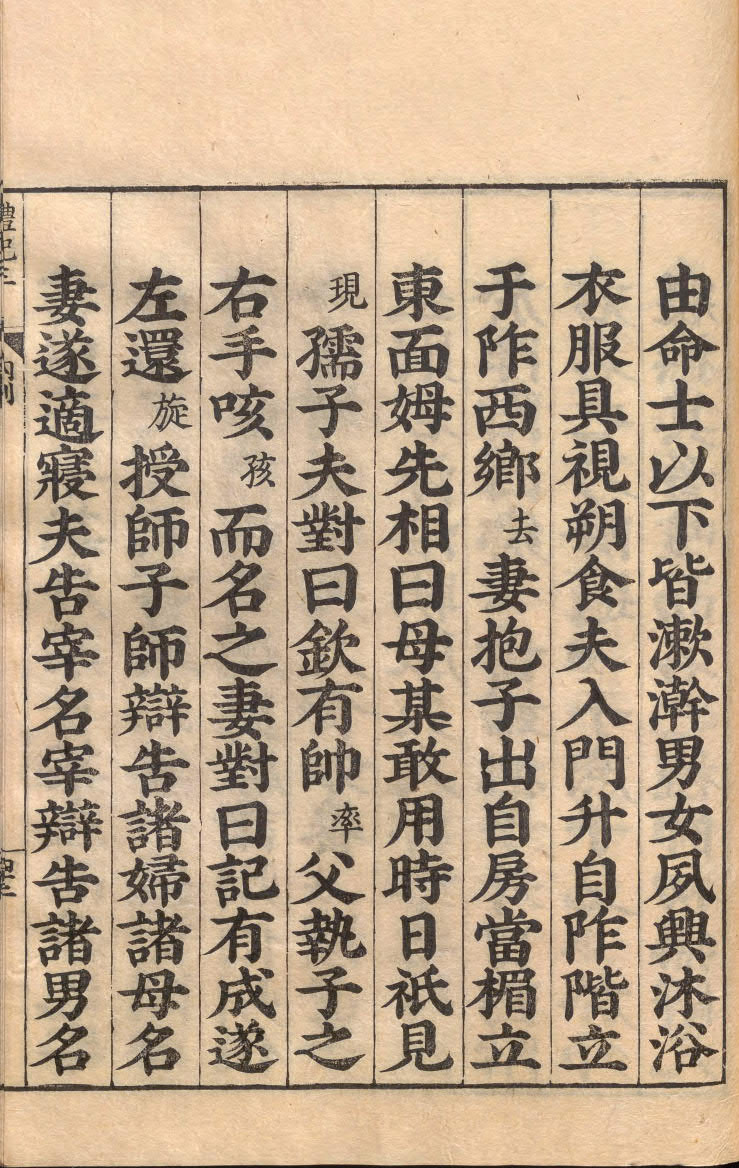 由命士以下皆漱澣男女夙興沐浴
衣服具視朔食夫入門升自阼階立
于阼西鄉去妻抱子出自房當楣立
東面姆先相曰母某敢用時日祇見
現孺子夫對曰欽有帥率父執子之
右手咳孩而名之妻對曰記有成遂
左還旋授師子師辯告諸婦諸母名
妻遂適寢夫告宰名宰辯告諸男名
禮記